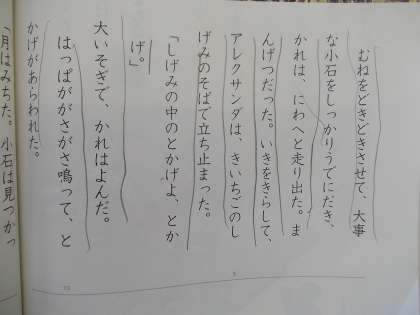 むねをどきどきさせて、大事
な小石をしっかりうでにだき、
かれは、にわへと走り出た。ま
んげつだった。いきをきらして、
アレクサンダは、きいちごのし
げみのそばで立ち止まった。
「しげみの中のとかげよ、とか
げ。」
大いそぎで、かれはよんだ。
はっぱががさがさ鳴って、と
かげがあらわれた。
「月はみちた。小石は見つかっ